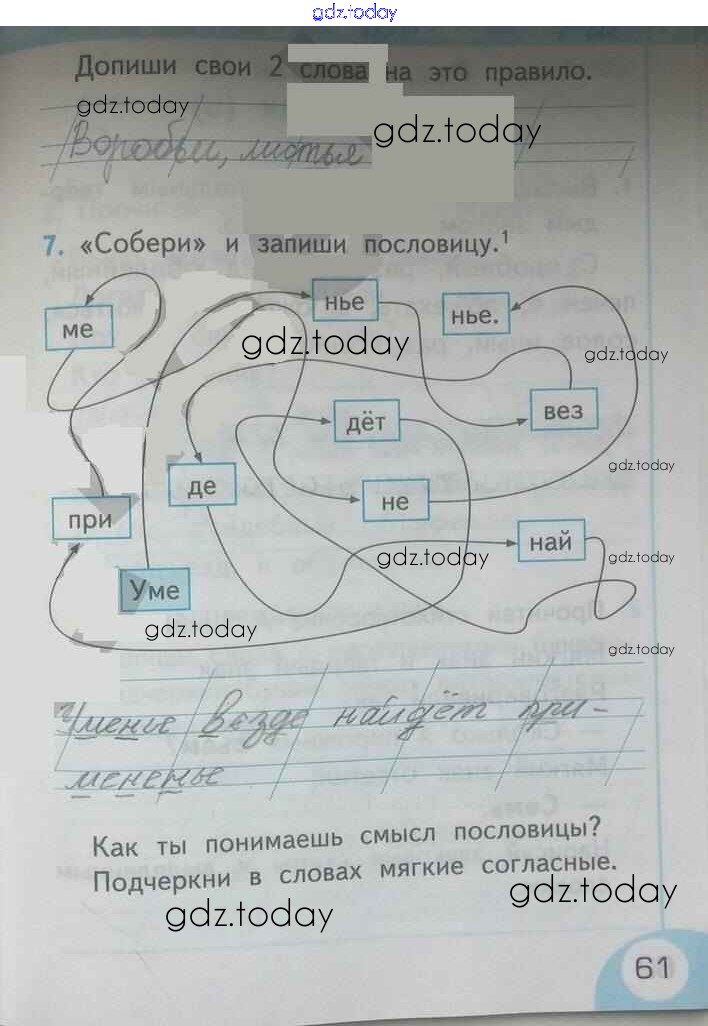 gdz.today
Допиши свои 2 слова на это правило.
gdz.today
gdz.today
Воробьи, листья
7. «Собери» и запиши пословицу.¹
нье
нье.
ме
gdz.today
gdz.today
вез
дёт
gdz.today
де
не
при
най
gdz.today
gdz.today
Уме
gdz.today
gdz.today
Уменье везде найдёт при-
мененье
Как ты понимаешь смысл пословицы?
Подчеркни в словах мягкие согласные.
gdz.today
gdz.today
61